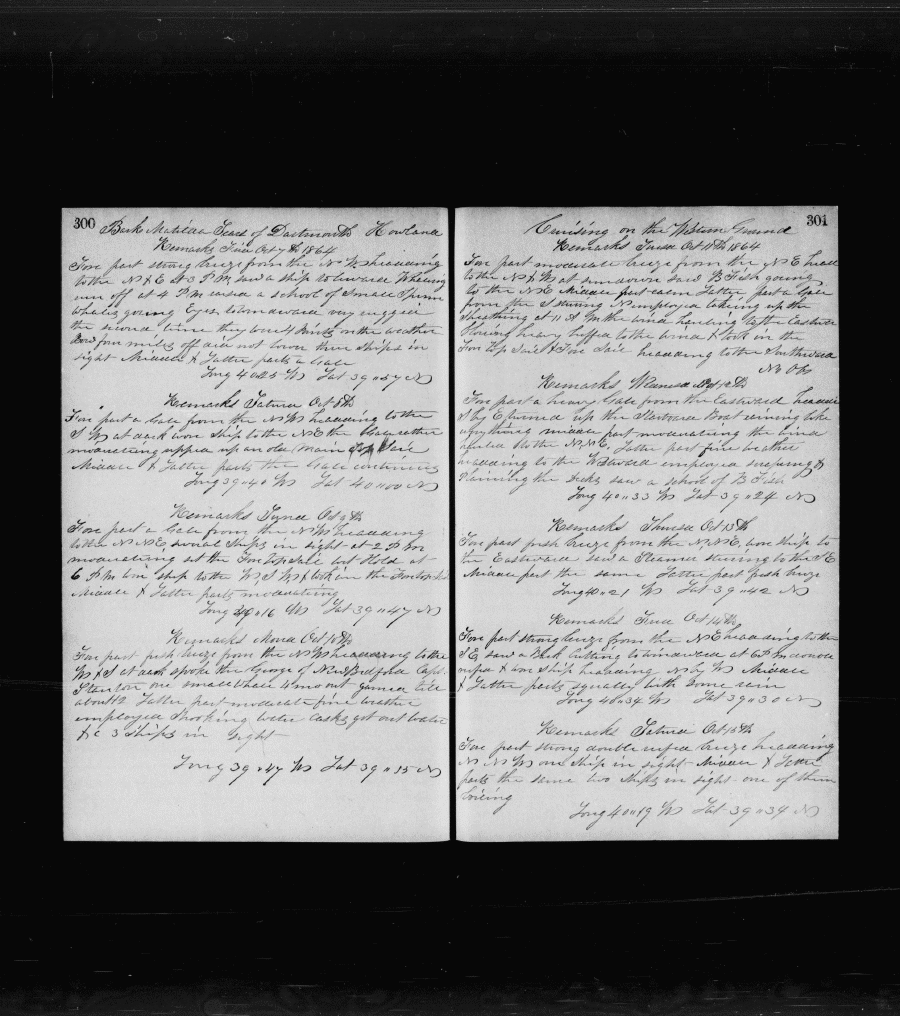 300
Bark Matilda Sears of Dartmouth Howland
Remarks Frid Oct 7th 1864
Fore part strong breeze from the N W headding
to the N & E at 3 P M saw a ship to leward Whaling
run off at 4 P M raised a school of Small Sperm
Whales going Eyes to windward very rugged
the second time they were 4 Points on the weather
Bow four miles off did not lower three Ships in
sight Middle & Latter parts a Gale
Long 40 " 25 W Lat 39 " 57 N
Remarks Saturd Oct 8th
Fore part a Gale from the N W headding to the
S W at dark wore Ship to the N E the Gale rather
moderating ripped up an old Main Top Sail
Middle & Latter parts the Gale continues
Long 39 " 40 W Lat 40 " 00 N
Remarks Synd Oct 9th
Fore part a Gale from the N W headding
to the N N E several Ships in sight at 2 P M
moderating set the Fore Topsail but Hold at
6 P M wore ship to the W S W & took in the Fore topsail
Middle & Latter parts moderating
Long 40 " 16 W Lat 39 " 47 N
Remarks Mond Oct 10th
Fore part fresh breeze from the N W headding to the
W & S at dark spoke the George of New Bedford Capt
Stanton one small whale 4 mo out gamed till
about 12 Latter part moderate fine weather
employed Shooking water casks got out water
& c 3 Ships in Sight
Long 39 " 47 W Lat 39 " 15 N
301
Cruising on the Western Ground
Remarks Tuesd Oct 11th 1864
Fore part moderate breeze from the N E head
to the N & W at sundown saw B Fish going
to the N E Middle part calm Latter part a Gale
from the S employed taking up the
Sheething at 11 A M the wind hauling to the Eastward
blowing heavy luffed to the wind & took in the
Fore Top Sail & Fore Sail headding to the Southward
No Obs
Remarks Wednesd Oct 12th
Fore part a heavy Gale from the Eastward headding
S by E turned up the Starboard Boat raining like
everything middle part moderating the wind
to the N N E. Latter part fine weather
headding to the Westward employed scraping &
Cleaning the Decks saw a school of B Fish
Long 40 " 33 W Lat 39 " 24 N
Remarks Thursd Oct 13th
Fore part fresh breeze from the N N E, wore ship to
the Eastward saw a Steamer stering to the S E
Middle part the same Latter part fresh breeze
Long 40 " 21 W Lat 39 " 42 N
Remarks Frid Oct 14th
Fore part strong breeze from the N E headding to the
S E saw a Bark Cutting to windward at 6 P M double
reefed & wore ship headding N by W Middle
& Latter parts squally with some rain
Long 40 " 34 W Lat 39 " 30 N
Remarks Saturd Oct 15th
Fore part strong double reefed breeze headding
N N W one Ship in sight Middle & Latter
parts the same two Ships in sight one of them
boiling
Long 40 " 19 W Lat 39 " 34 N